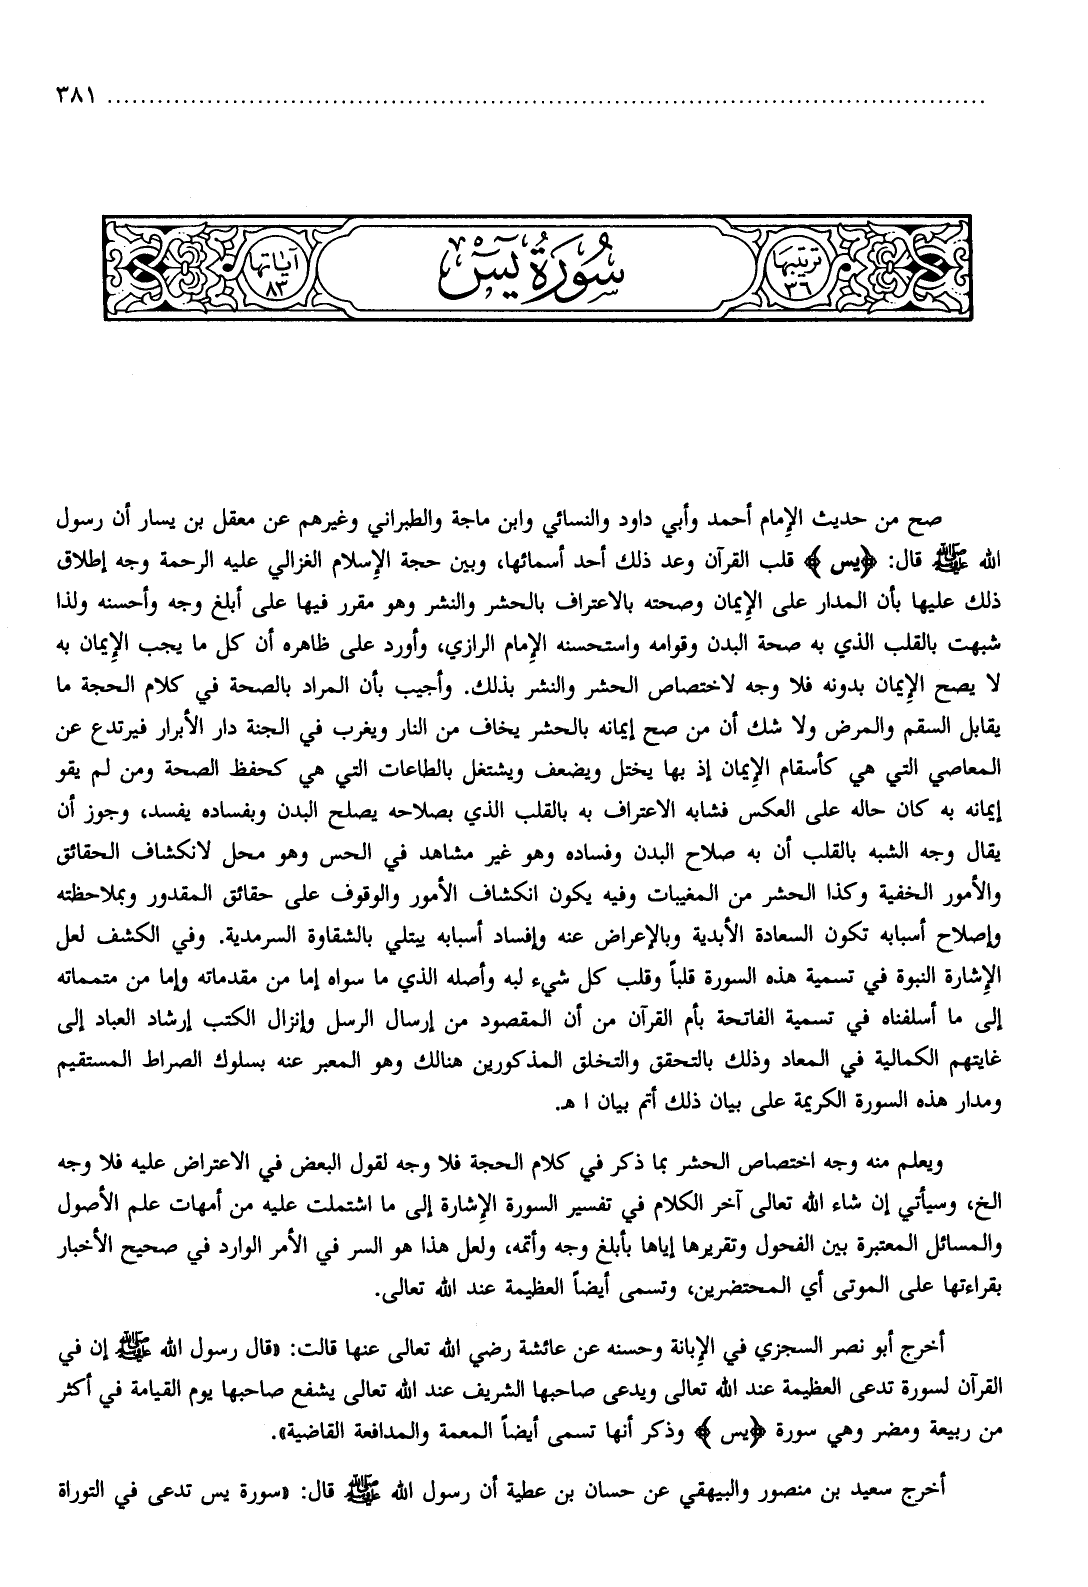 ٣٨١
ترتيبها
٣٦
سورة يس
آياتها
٨٣
صح من حديث الإمام أحمد وأبي داود والنسائي وابن ماجة والطبراني وغيرهم عن معقل بن يسار أن رسول
الله ﷺ قال: ﴿يس﴾ قلب القرآن وعد ذلك أحد أسمائها، وبين حجة الإسلام الغزالي عليه الرحمة وجه إطلاق
ذلك عليها بأن المدار على الإيمان وصحته بالاعتراف بالحشر والنشر وهو مقرر فيها على أبلغ وجه وأحسنه ولذا
شبهت بالقلب الذي به صحة البدن وقوامه واستحسنه الإمام الرازي، وأورد على ظاهره أن كل ما يجب الإيمان به
لا يصح الإيمان بدونه فلا وجه لاختصاص الحشر والنشر بذلك. وأجيب بأن المراد بالصحة في كلام الحجة ما
يقابل السقم والمرض ولا شك أن من صح إيمانه بالحشر يخاف من النار ويغرب في الجنة دار الأبرار فيرتدع عن
المعاصي التي هي كأسقام الإيمان إذ بها يختل ويضعف ويشتغل بالطاعات التي هي كحفظ الصحة ومن لم يقو
إيمانه به كان حاله على العكس فشابه الاعتراف به بالقلب الذي بصلاحه يصلح البدن وبفساده يفسد، وجوز أن
يقال وجه الشبه بالقلب أن به صلاح البدن وفساده وهو غير مشاهد في الحس وهو محل لانكشاف الحقائق
والأمور الخفية وكذا الحشر من المغيبات وفيه يكون انكشاف الأمور والوقوف على حقائق المقدور وبملاحظته
وإصلاح أسبابه تكون السعادة الأبدية وبالإعراض عنه وإفساد أسبابه يبتلي بالشقاوة السرمدية. وفي الكشف لعل
الإشارة النبوة في تسمية هذه السورة قلباً وقلب كل شيء لبه وأصله الذي ما سواه إما من مقدماته وإما من متمماته
إلى ما أسلفناه في تسمية الفاتحة بأم القرآن من أن المقصود من إرسال الرسل وإنزال الكتب إرشاد العباد إلى
غايتهم الكمالية في المعاد وذلك بالتحقق والتخلق المذكورين هنالك وهو المعبر عنه بسلوك الصراط المستقيم
ومدار هذه السورة الكريمة على بيان ذلك أتم بيان ا هـ.
ويعلم منه وجه اختصاص الحشر بما ذكر في كلام الحجة فلا وجه لقول البعض في الاعتراض عليه فلا وجه
الخ، وسيأتي إن شاء الله تعالى آخر الكلام في تفسير السورة الإشارة إلى ما اشتملت عليه من أمهات علم الأصول
والمسائل المعتبرة بين الفحول وتقريرها إياها بأبلغ وجه وأتمه، ولعل هذا هو السر في الأمر الوارد في صحيح الأخبار
بقراءتها على الموتى أي المحتضرين، وتسمى أيضاً العظيمة عند الله تعالى.
أخرج أبو نصر السجزي في الإبانة وحسنه عن عائشة رضي الله تعالى عنها قالت: «قال رسول الله ﷺ إن في
القرآن لسورة تدعى العظيمة عند الله تعالى ويدعى صاحبها الشريف عند الله تعالى يشفع صاحبها يوم القيامة في أكثر
من ربيعة ومضر وهي سورة ﴿يس﴾ وذكر أنها تسمى أيضاً المعمة والمدافعة القاضية».
أخرج سعيد بن منصور والبيهقي عن حسان بن عطية أن رسول الله ﷺ قال: «سورة يس تدعى في التوراة